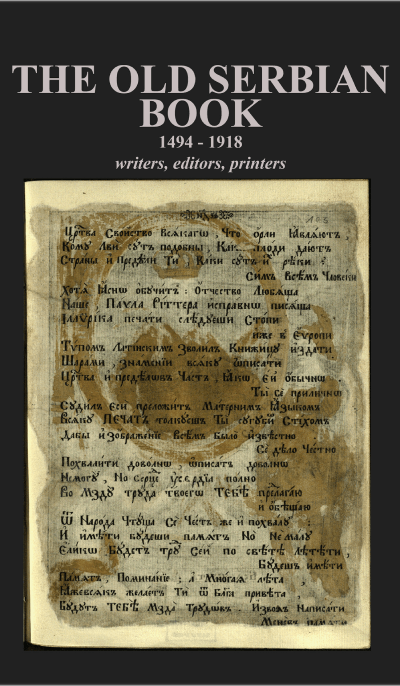 THE OLD SERBIAN
BOOK
1494 - 1918
writers, editors, printers
Црⷭ҇тва Своиство Всѧкагѡ, Что орли Ꙗвлѧютъ,
Кому Лви сутъ подобны, Как плоди даютъ
Страны и Предѣли Ти, Каки сутъ и рѣки
Симъ Всѣмъ Чловеки
Хотѧ Ꙗснѡ обучитъ: Отчество Любѧща
Наше, Павла Риттера исправнѡ писѧща
печати слѣдуѣши Стопи
иже в Еуропи
Тупомъ Лѣтинскимъ Зволилъ Книжицу издати
Шарами, знаменїи всѧку ѡписати
Црⷭ҇тва и предѣлѡвъ Частъ, Ꙗкѡ, Ей обычнѡ.
Ты сѐ приличнѡ
Судилъ Еси преложитъ Матернимъ Ꙗзыкомъ
Всѧку ПЕЧАТЪ толкуешъ Ты сугуби Стїхомъ
Дабы изображенїе Всѣмъ было извѣстно
Сѐ дѣло Честно
Похвалити доволнѡ, ѡписатъ доволнѡ
Немогу, Но Серце усердїа полно
Во Мзду труда твоегѡ ТЕБѢ прелагаю
и обѣщаю
Ѿ Народа Чтуща Сѐ Честъ же и похвалу:
И имѣти будеши памѧтъ Но Немалу
Еликѡ Будетъ тру Сеи по свѣтѣ лѣтѣти,
Будешъ имѣти
Памѧтъ, Поминанїе: а Многаѧ лѣта
желаетъ Ти ѿ Бг҃а привѣта,
Будутъ ТЕБѢ Мзда Трудѡвъ. Изволъ Написати